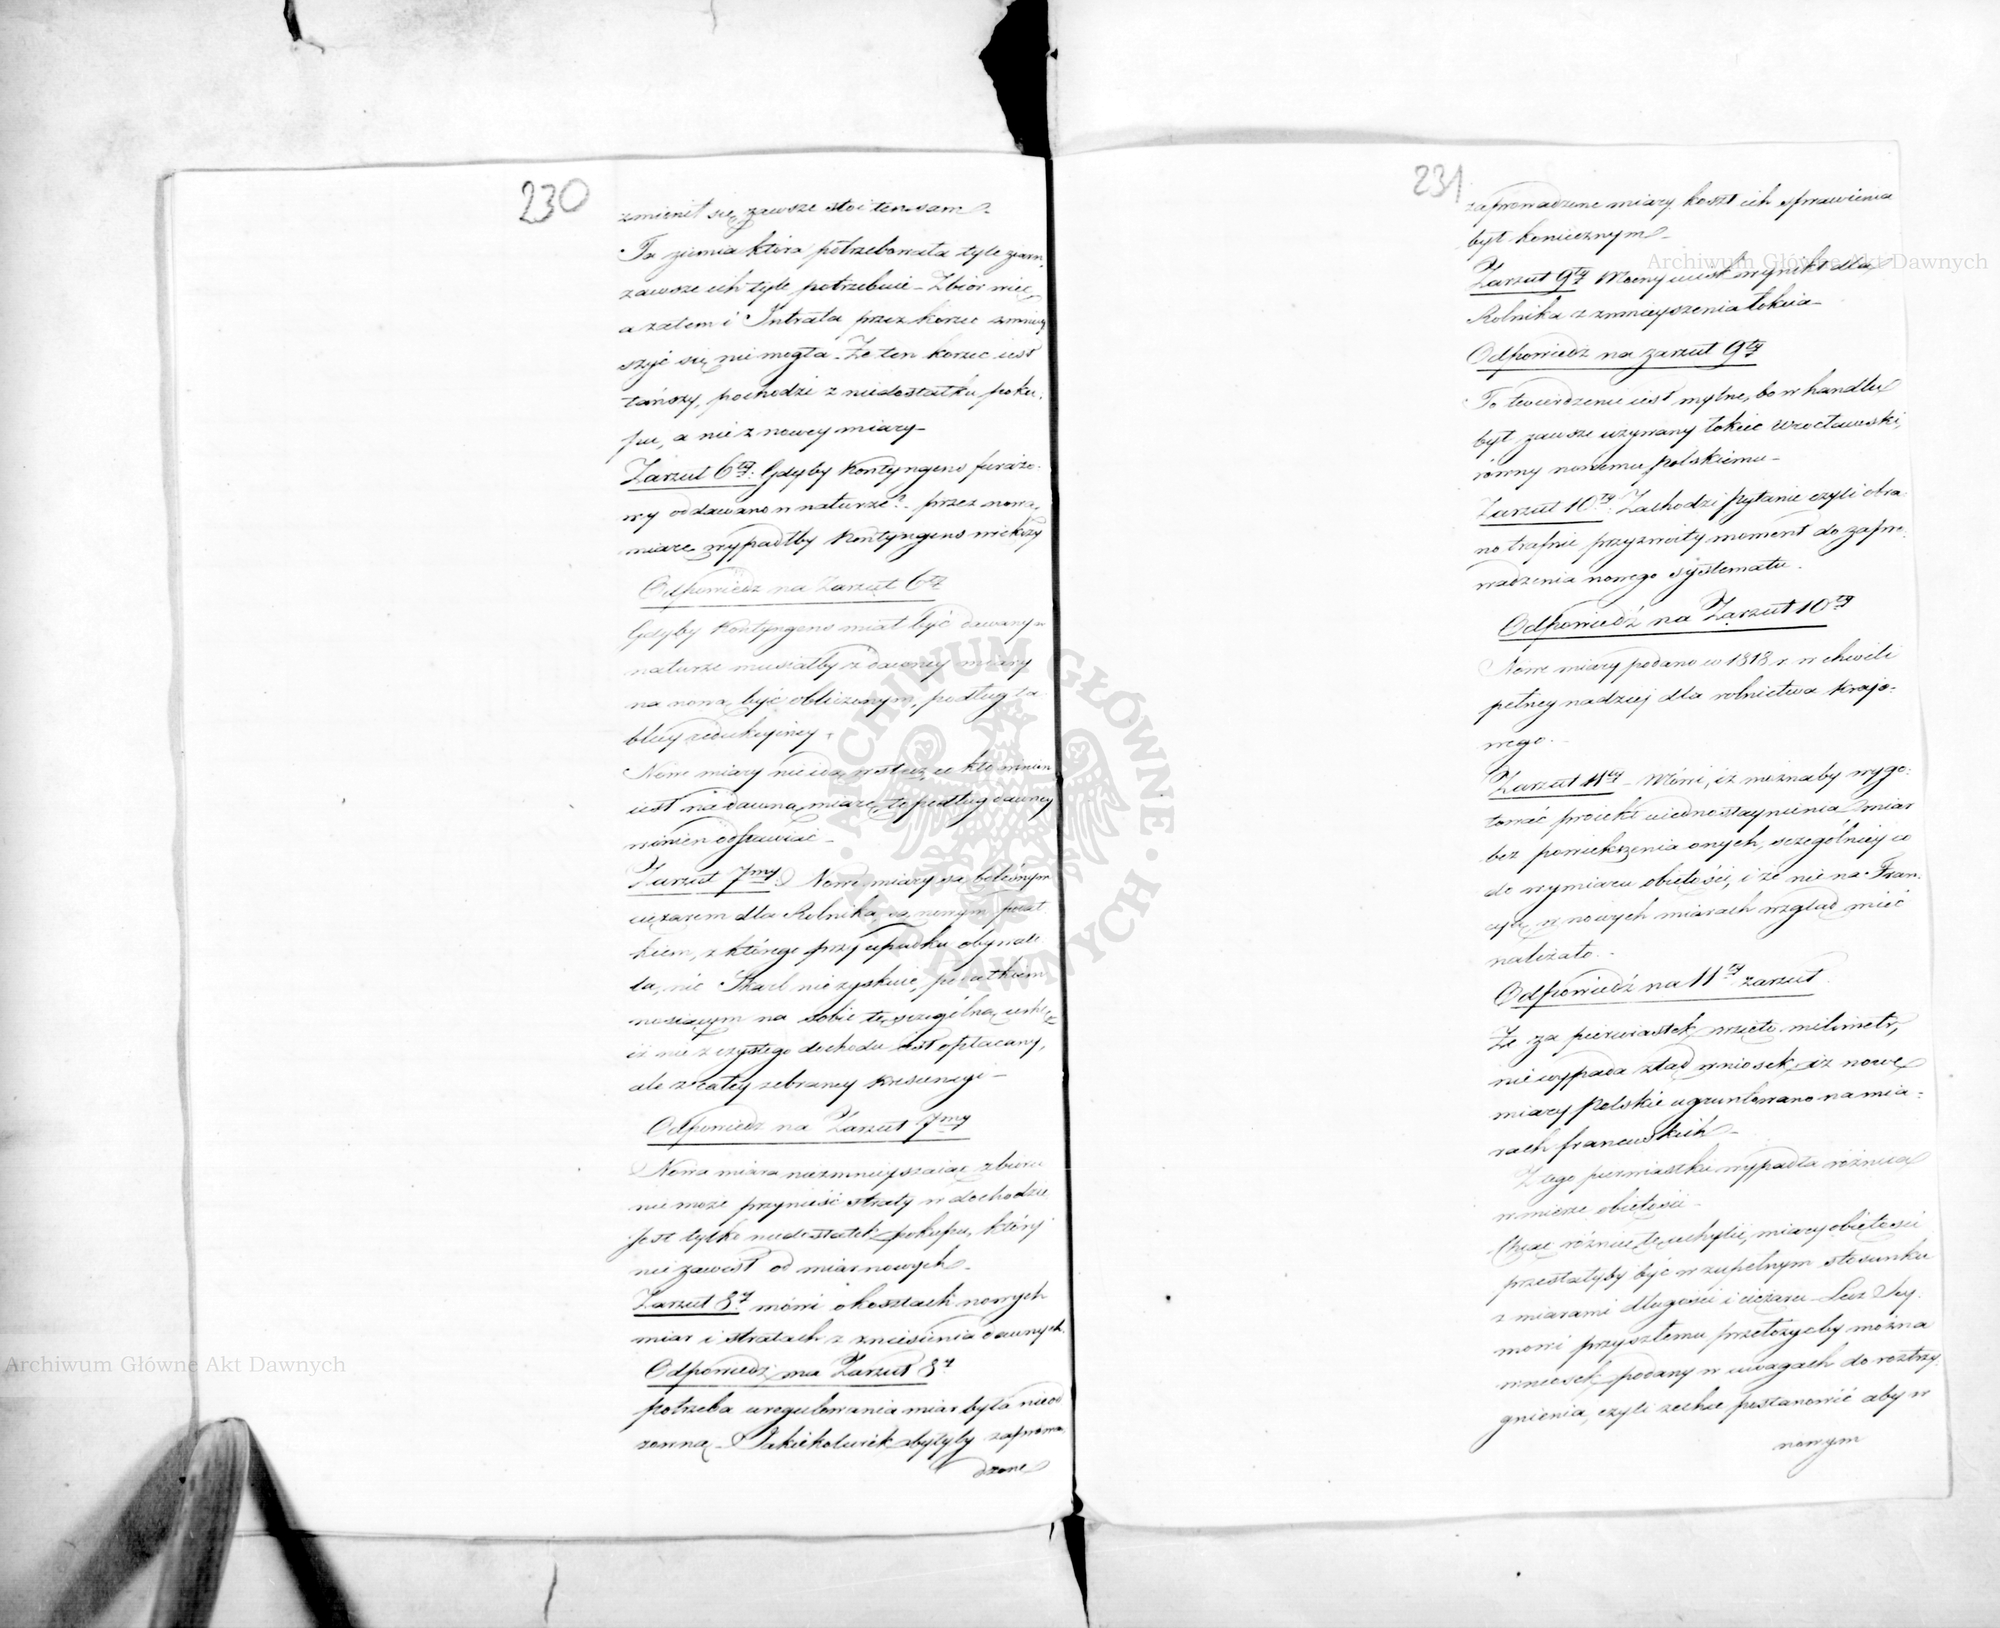 230
zmienił się, zawsze stoi ten sam.
Ta ziemia która potrzebowała tyle ziarn,
zawsze ich tyle potrzebuie – Zbiór więc,
a zatem i Intrata przez korzec zmniey
szyć się nie mogła. Że ten korzec iest
tańszy, pochodzi z niedostatku poku.
pu, a nie z nowey miary –
Zarzut 6ty: Gdyby Kontyngens furażo.
wy oddawano w naturze? przez nową
miarę wypadłby Kontyngens większy
Odpowiedz na Zarzut 6ty
Gdyby Kontyngens miał być dawany w
naturze musiałby z dawney miary
na nową być obliczonym, podług ta
blicy redukcyiney.
Nowe miary nie idą wstecz, ie kto winien
iest na dawną miarę, to podług dawney
winien odstawiać –
Zarzut 7my Nowe miary są bolesnym
ciężarem dla Rolnika, są nowym podat
kiem, z którego przy upadku obywate
la, nic Skarb nie zyskuie, podatkiem
noszącym na sobie tę szczególną cechę
iż nie z czystego dochodu iest opłacany,
ale z całey zebraney krescencyi –
Odpowiedz na Zarzut 7my
Nowa miara niezmnieyszaiąc zbioru
nie może przynieść straty w dochodzie
Jest tylko niedostatek pokupu, który
nie zawisł od miar nowych –
Zarzut 8y mówi o kosztach nowych
miar i stratach z zniesienia dawnych
Odpowiedz na Zarzut 8y
potrzeba uregulowania miar była nieod
zowną – Jakiekolwiek byłyby zaprowa
dzone
231
zaprowadzone miary koszt ich sprawienia
był koniecznym –
Zarzut 9ty Mocny ucisk wynikł dla
Rolnika z zmnieyszenia łokcia –
Odpowiedz na zarzut 9ty
To twierdzenie iest mylne, bo w handlu
był zawsze używany łokieć Wrocławski,
równy nowemu polskiemu –
Zarzut 10ty. Zachodzi pytanie czyli obra.
no trafnie przyzwoity moment do zapro.
wadzenia nowego systematu.
Odpowiedź na Zarzut 10ty
Nowe miary podano w 1818 r. w chwili
pełney nadziej dla rolnictwa kraio.
wego. –
Zarzut 11ty – Mówi, iż możnaby wygo.
tować proiekt uiednostaynienia miar
bez powiększenia onych, szczególniey co
do wymiaru obiętości, i że nie na Fran.
cyę w nowych miarach wzgląd mieć
należało. –
Odpowiedź na 11ty zarzut.
Że za pierwiastek wzięto milimetr,
nie wypada ztąd wniosek, iż nowe
miary Polskie ugruntowano na mia.
rach francuskich –
Z tego pierwiastku wypadła różnica
w mierze obiętości –
Chcąc różnicę tę uchylić, miary obiętości
przestałyby być w zupełnym stosunku
z miarami długości i ciężaru – Lecz Sey.
mowi przyszłemu przełożyćby można
wniosek podany w uwagach do roztrzy.
gnienia, czyli zechce postanowić aby w
nowym